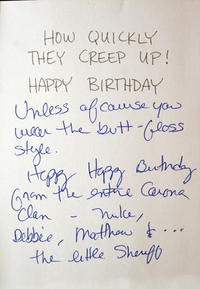 HOW QUICKLY
THEY CREEP UP!
HAPPY BIRTHDAY
Unless of course you
wear the butt-floss
style.
Happy Happy Birthday
from the entire Carona
Clan - Mike,
Debbie, Matthew & ...
the little Sheriff